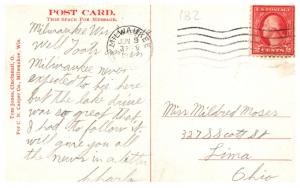 182
POST CARD.
THIS SPACE FOR MESSAGE.
MILWAUKEE
Milwaukee Wis
Well Toots
Milwaukee never
expected to be here
but the lake drive
was so great that
I had to follow it
will give you all
the news in a letter
Charle
Tom Jones, Cincinnati, O.
For C. N. Caspar Co., Milwaukee, Wis.
Miss Mildred Moser
327 S Scott St
Lima
Ohio